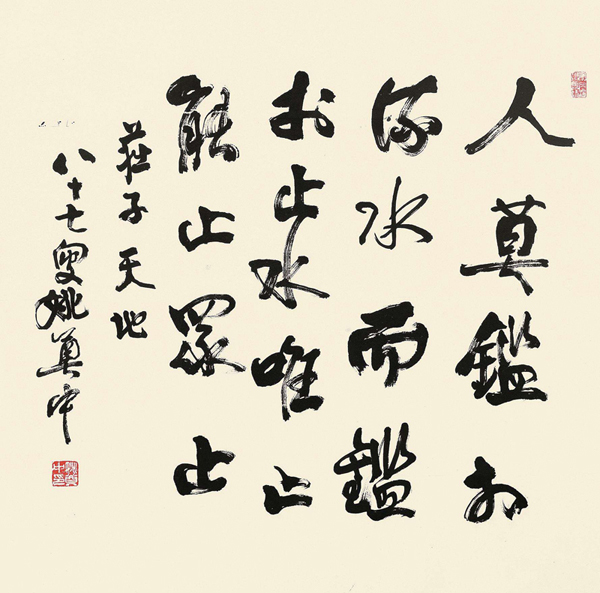 人莫鑑於
流水而鑑
於止水唯止
能止眾止
莊子天地
八十七叟姚奠中